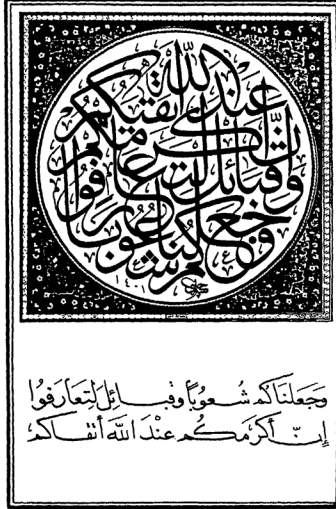 وجعلناكم شعوبا وقبائل لتعارفوا إن أكرمكم عند الله أتقاكم
١٤٠١
وَجَعَلنَاكُم شُعُوبًا وَقَبَائِل لِتَعَارَفُوا
إِنّ أكرَمَكُم عندَ اللهِ أتقاكم